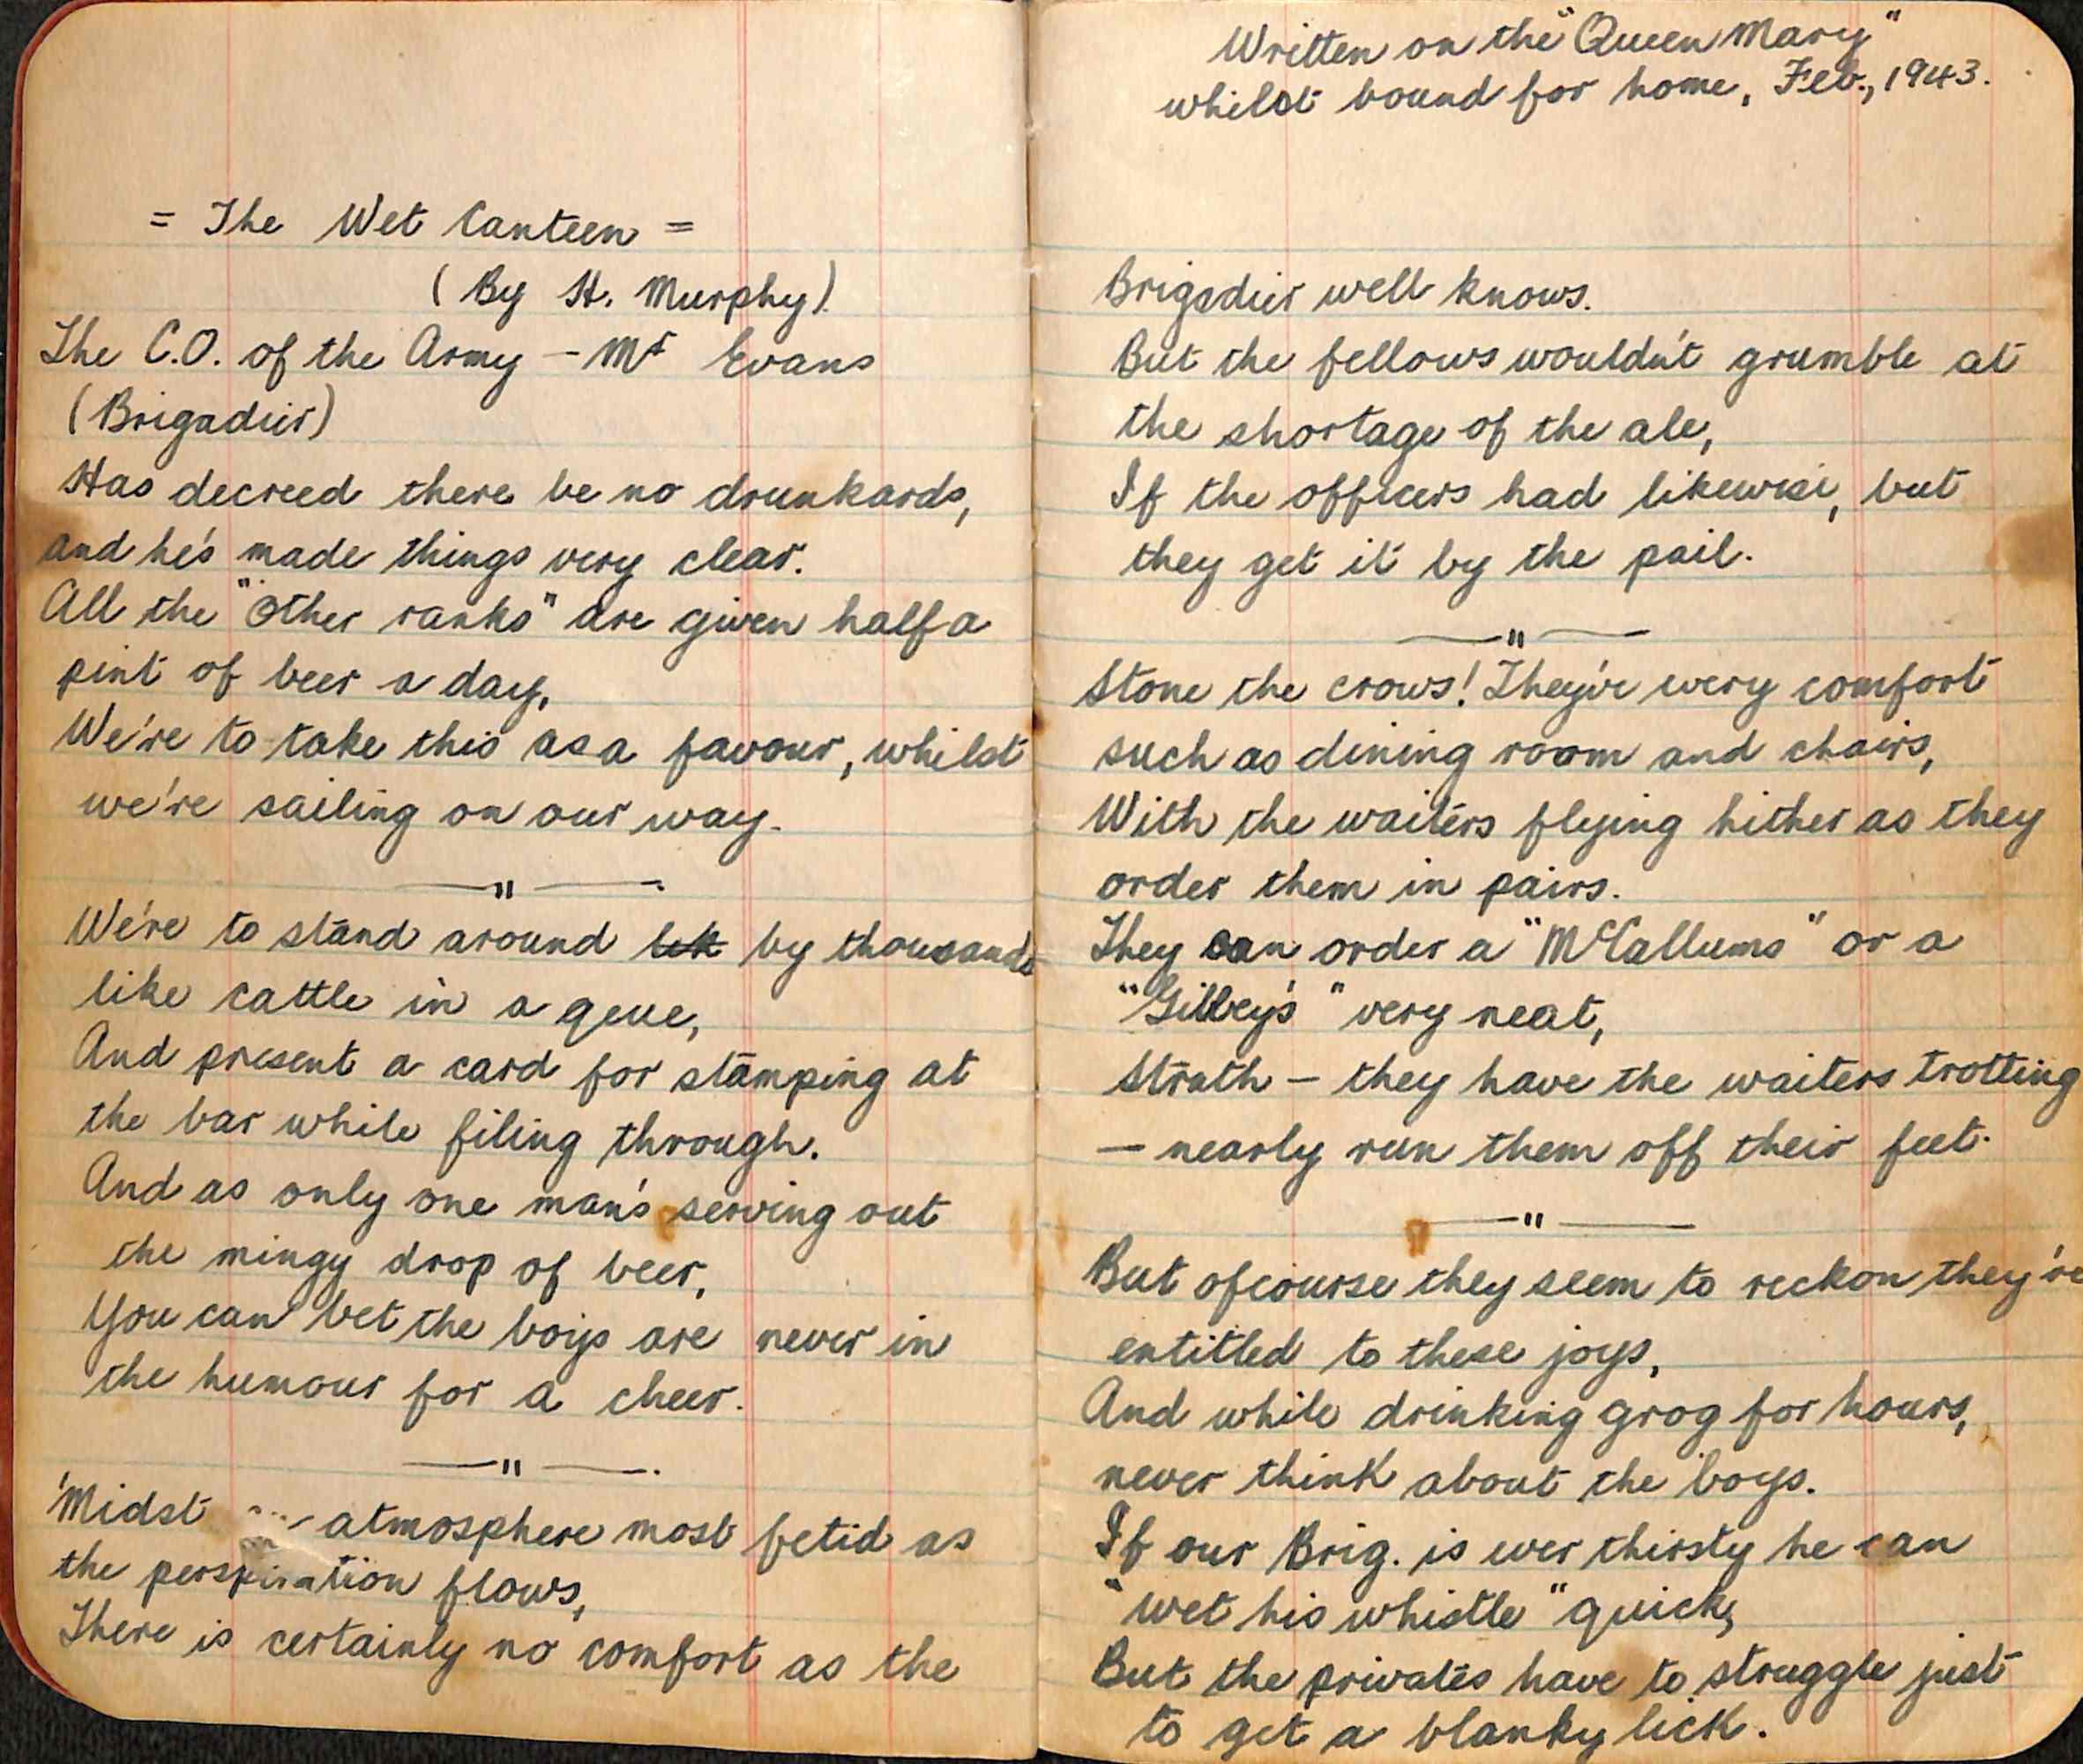 = The Wet Canteen =
(By H. Murphy)
The C.O. of the Army - Mr Evans
(Brigadier)
Has decreed there be no drunkards,
and he's made things very clear.
All the "Other ranks" are given half a
pint of beer a day,
We're to take this as a favour, whilst
we're sailing on our way.
— " —
We're to stand around lik by thousands
like cattle in a qeue,
And present a card for stamping at
the bar while filing through.
And as only one man's serving out
the mingy drop of beer,
You can bet the boys are never in
the humour for a cheer.
— " —
'Midst atmosphere most fetid as
the perspiration flows,
There is certainly no comfort as the
Written on the "Queen Mary"
whilst bound for home, Feb., 1943.
Brigadier well knows.
But the fellows wouldn't grumble at
the shortage of the ale,
If the officers had likewise, but
they get it by the pail.
— " —
Stone the crows! They've every comfort
such as dining room and chairs,
With the waiters flying hither as they
order them in pairs.
They can order a "McCallums" or a
"Gilbey's" very neat,
Struth - they have the waiters trotting
- nearly run them off their feet.
— " —
But ofcourse they seem to reckon they're
entitled to these joys,
And while drinking grog for hours,
never think about the boys.
If our Brig. is ever thirsty he can
"wet his whistle" quick,
But the privates have to struggle just
to get a blanky lick.